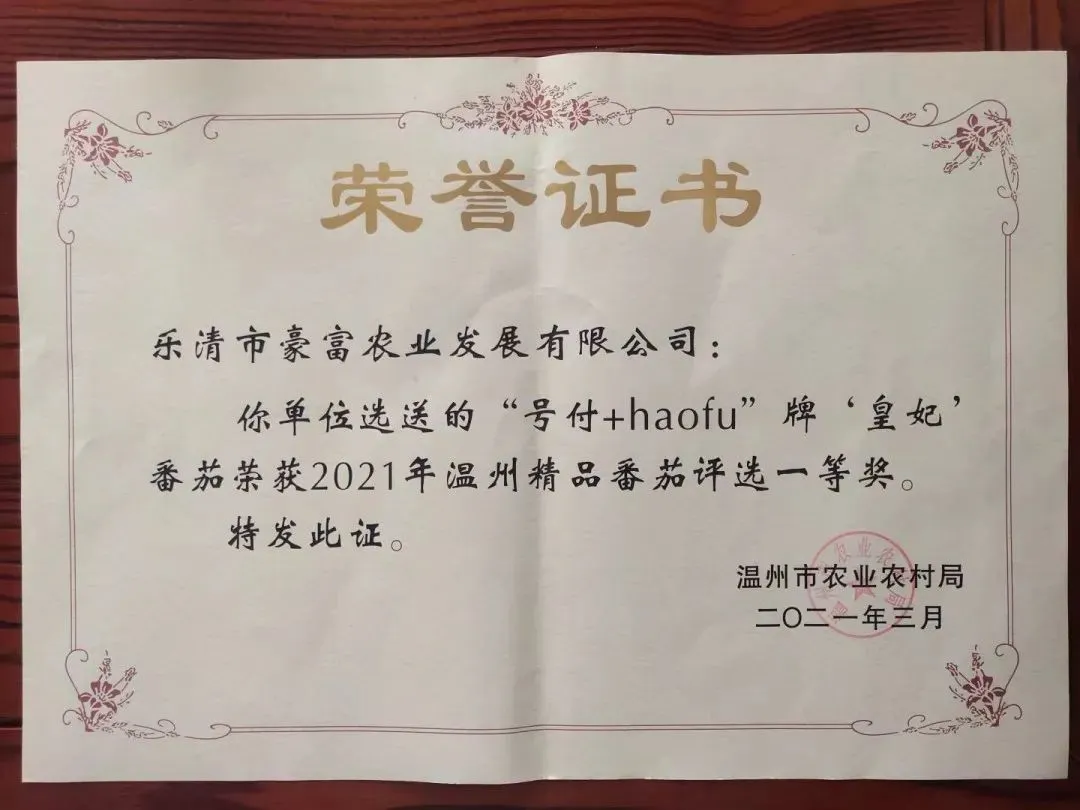 荣誉证书
乐清市豪富农业发展有限公司：
你单位选送的“号付+haofu”牌‘皇妃’
番茄荣获2021年温州精品番茄评选一等奖。
特发此证。
温州市农业农村局
二〇二一年三月